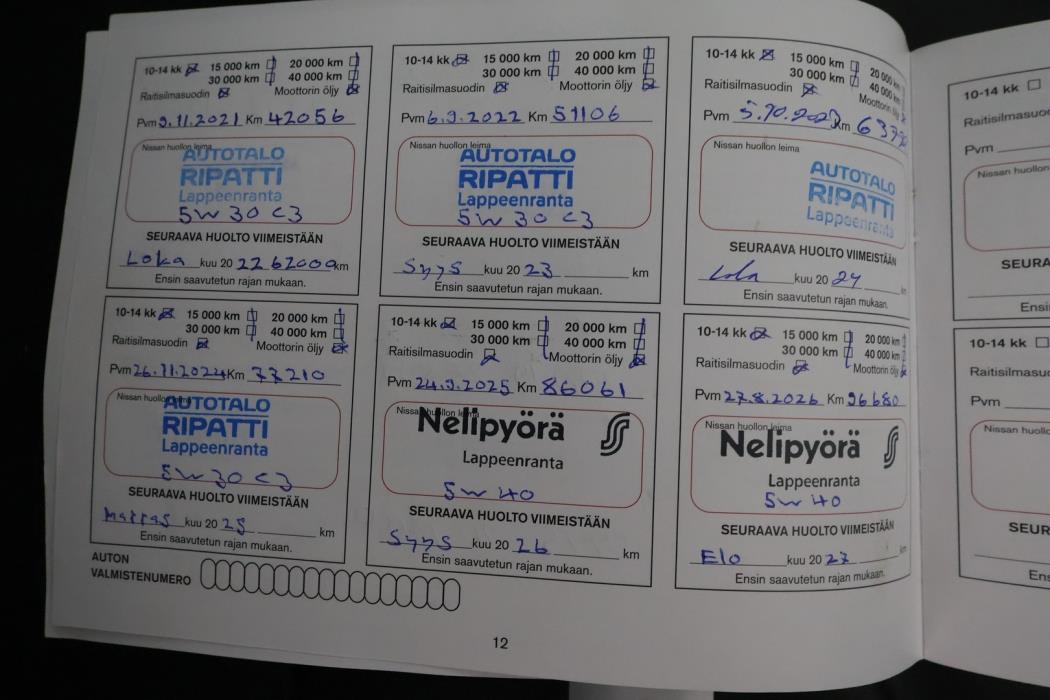 10-14 kk 15 000 km 20 000 km
30 000 km 40 000 km
Raitisilmasuodin Moottorin öljy
Pvm 9.11.2021 Km 42056
Nissan huollon leima
AUTOTALO
RIPATTI
Lappeenranta
5W 30 C3
SEURAAVA HUOLTO VIIMEISTÄÄN
Loka kuu 20 22 62000 km
Ensin saavutetun rajan mukaan.
10-14 kk 15 000 km 20 000 km
30 000 km 40 000 km
Raitisilmasuodin Moottorin öljy
Pvm 6.9.2022 Km 51106
Nissan huollon leima
AUTOTALO
RIPATTI
Lappeenranta
5W 30 C3
SEURAAVA HUOLTO VIIMEISTÄÄN
Syys kuu 20 23 km
Ensin saavutetun rajan mukaan.
10-14 kk 15 000 km 20 000 km
30 000 km 40 000
Raitisilmasuodin Moottorin öljy
Pvm 5.10.2023 Km
Nissan huollon leima
AUTOTALO
RIPATTI
Lappeenranta
SEURAAVA HUOLTO VIIMEISTÄÄN
Loka kuu 20 24 km
Ensin saavutetun rajan mukaan.
10-14 kk 15 000 km 20 000 km
30 000 km 40 000 km
Raitisilmasuodin Moottorin öljy
Pvm 26.11.2024 Km 77210
Nissan huollon
AUTOTALO
RIPATTI
Lappeenranta
5W 30 C3
SEURAAVA HUOLTO VIIMEISTÄÄN
Marras kuu 20 25 km
Ensin saavutetun rajan mukaan.
10-14 kk 15 000 km 20 000 km
30 000 km 40 000 km
Raitisilmasuodin Moottorin öljy
Pvm 24.9.2025 Km 86061
Nissan huollon leima
Nelipyörä
Lappeenranta
5W 40
SEURAAVA HUOLTO VIIMEISTÄÄN
Syys kuu 20 26 km
Ensin saavutetun rajan mukaan.
10-14 kk 15 000 km 20 000 km
30 000 km 40 000 km
Raitisilmasuodin Moottorin öljy
Pvm 27.8.2026 Km 96680
Nissan huollon leima
Nelipyörä
Lappeenranta
5W 40
SEURAAVA HUOLTO VIIMEISTÄÄN
Elo kuu 20 27 km
Ensin saavutetun rajan mukaan.
AUTON
VALMISTENUMERO
12
10-14 kk
Raitisilmasuo
Pvm
Nissan huollon
SEURA
Ensi
10-14 kk
Raitisilmasu
Pvm
Nissan huollo
SEUR
Ens